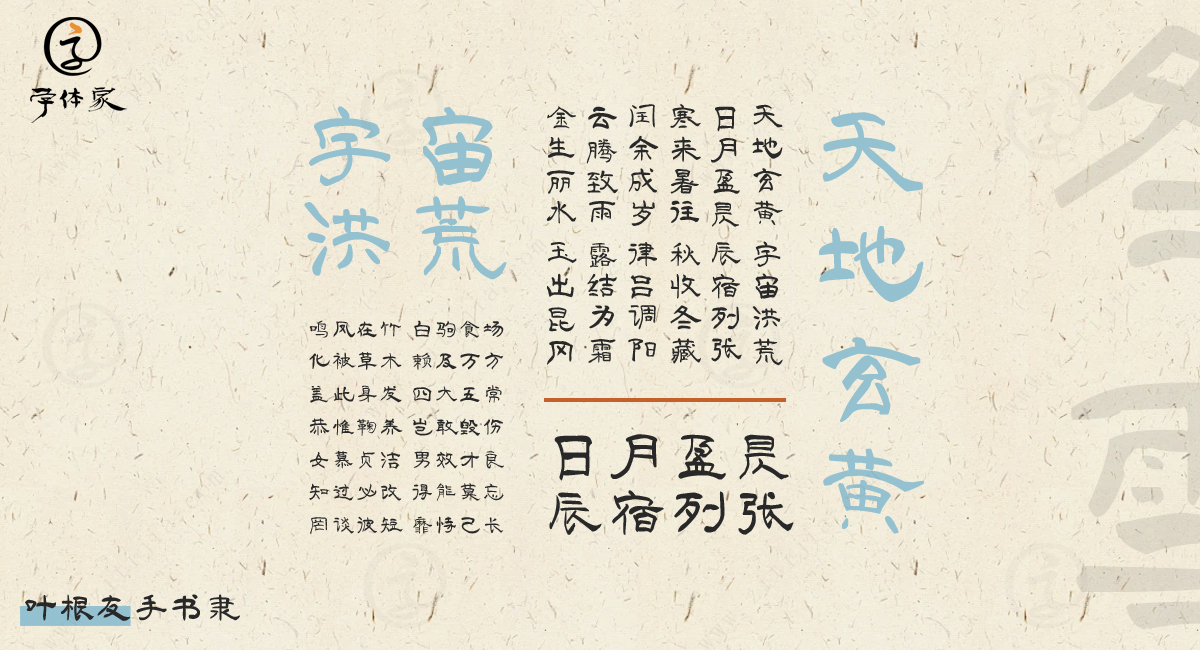 字
字体家
宇宙
洪荒
鸣凤在竹 白驹食场
化被草木 赖及万方
盖此身发 四大五常
恭惟鞠养 岂敢毁伤
女慕贞洁 男效才良
知过必改 得能莫忘
罔谈彼短 靡恃己长
天地玄黄 宇宙洪荒
日月盈昃 辰宿列张
寒来暑往 秋收冬藏
闰余成岁 律吕调阳
云腾致雨 露结为霜
金生丽水 玉出昆冈
日月盈昃
辰宿列张
天地玄黄
叶根友手书隶